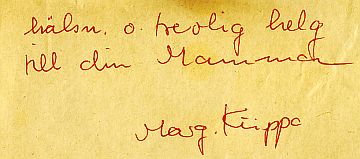 hälsn. o. trevlig helg
till din Mamma
Marg. Kiippa